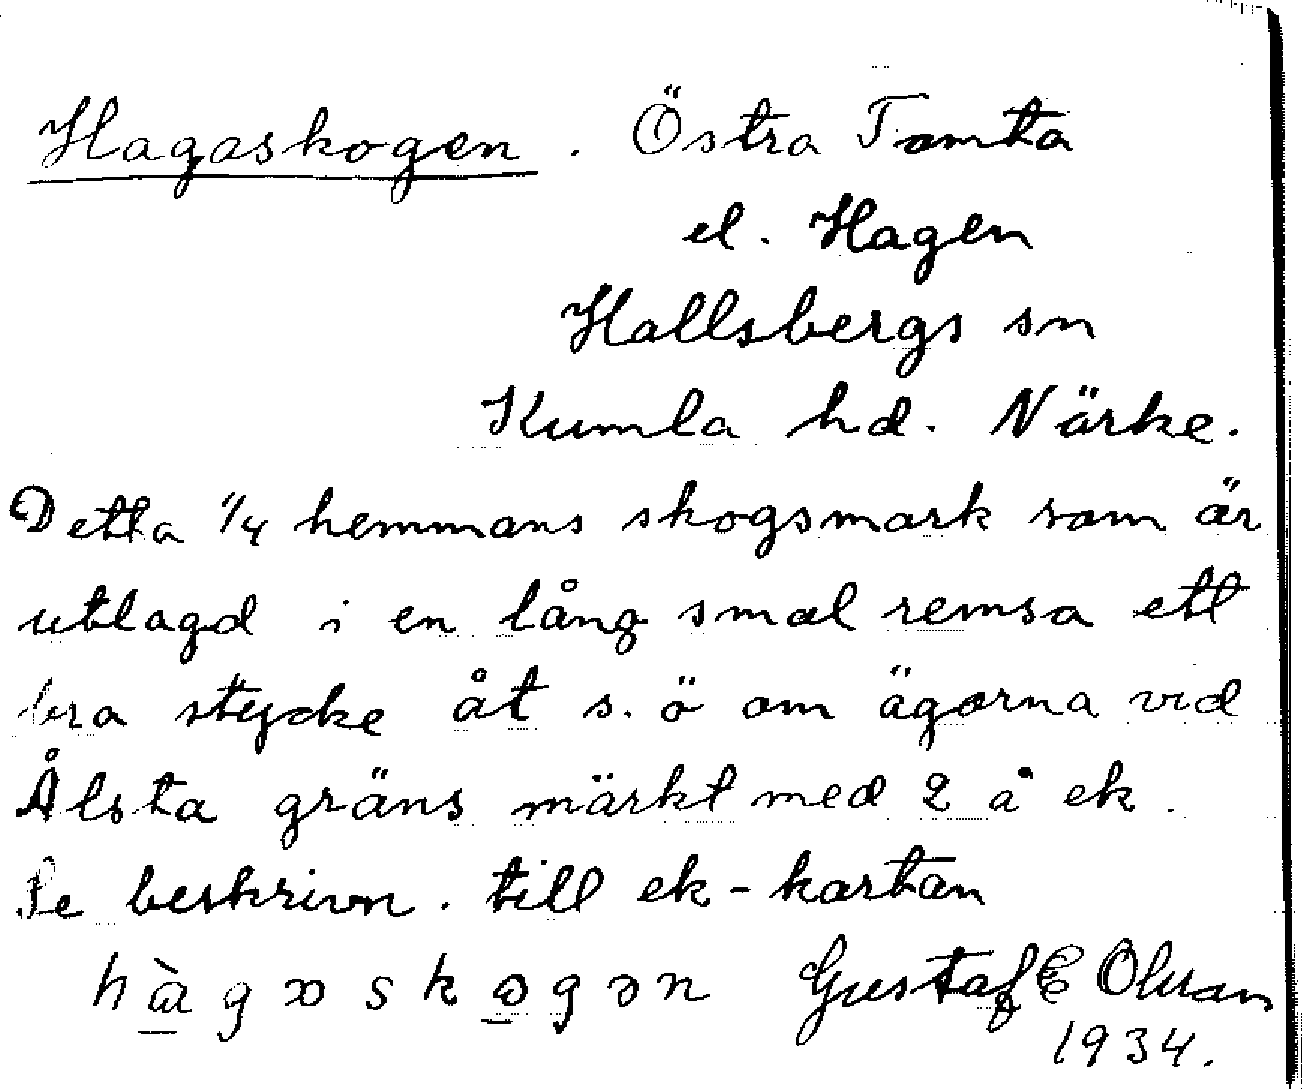 Hagaskogen. Östra Tomta
el. Hagen
Hallsbergs sn
Kumla hd. Närke.
Detta 1/4 hemmans skogsmark som är
utlagd i en lång smal remsa ett
bra stycke åt s.ö om ägorna vid
Ålsta gräns märkt med 2 å ek.
Se beskrivn. till ek-kartan
Gustaf E Olsson
1934.